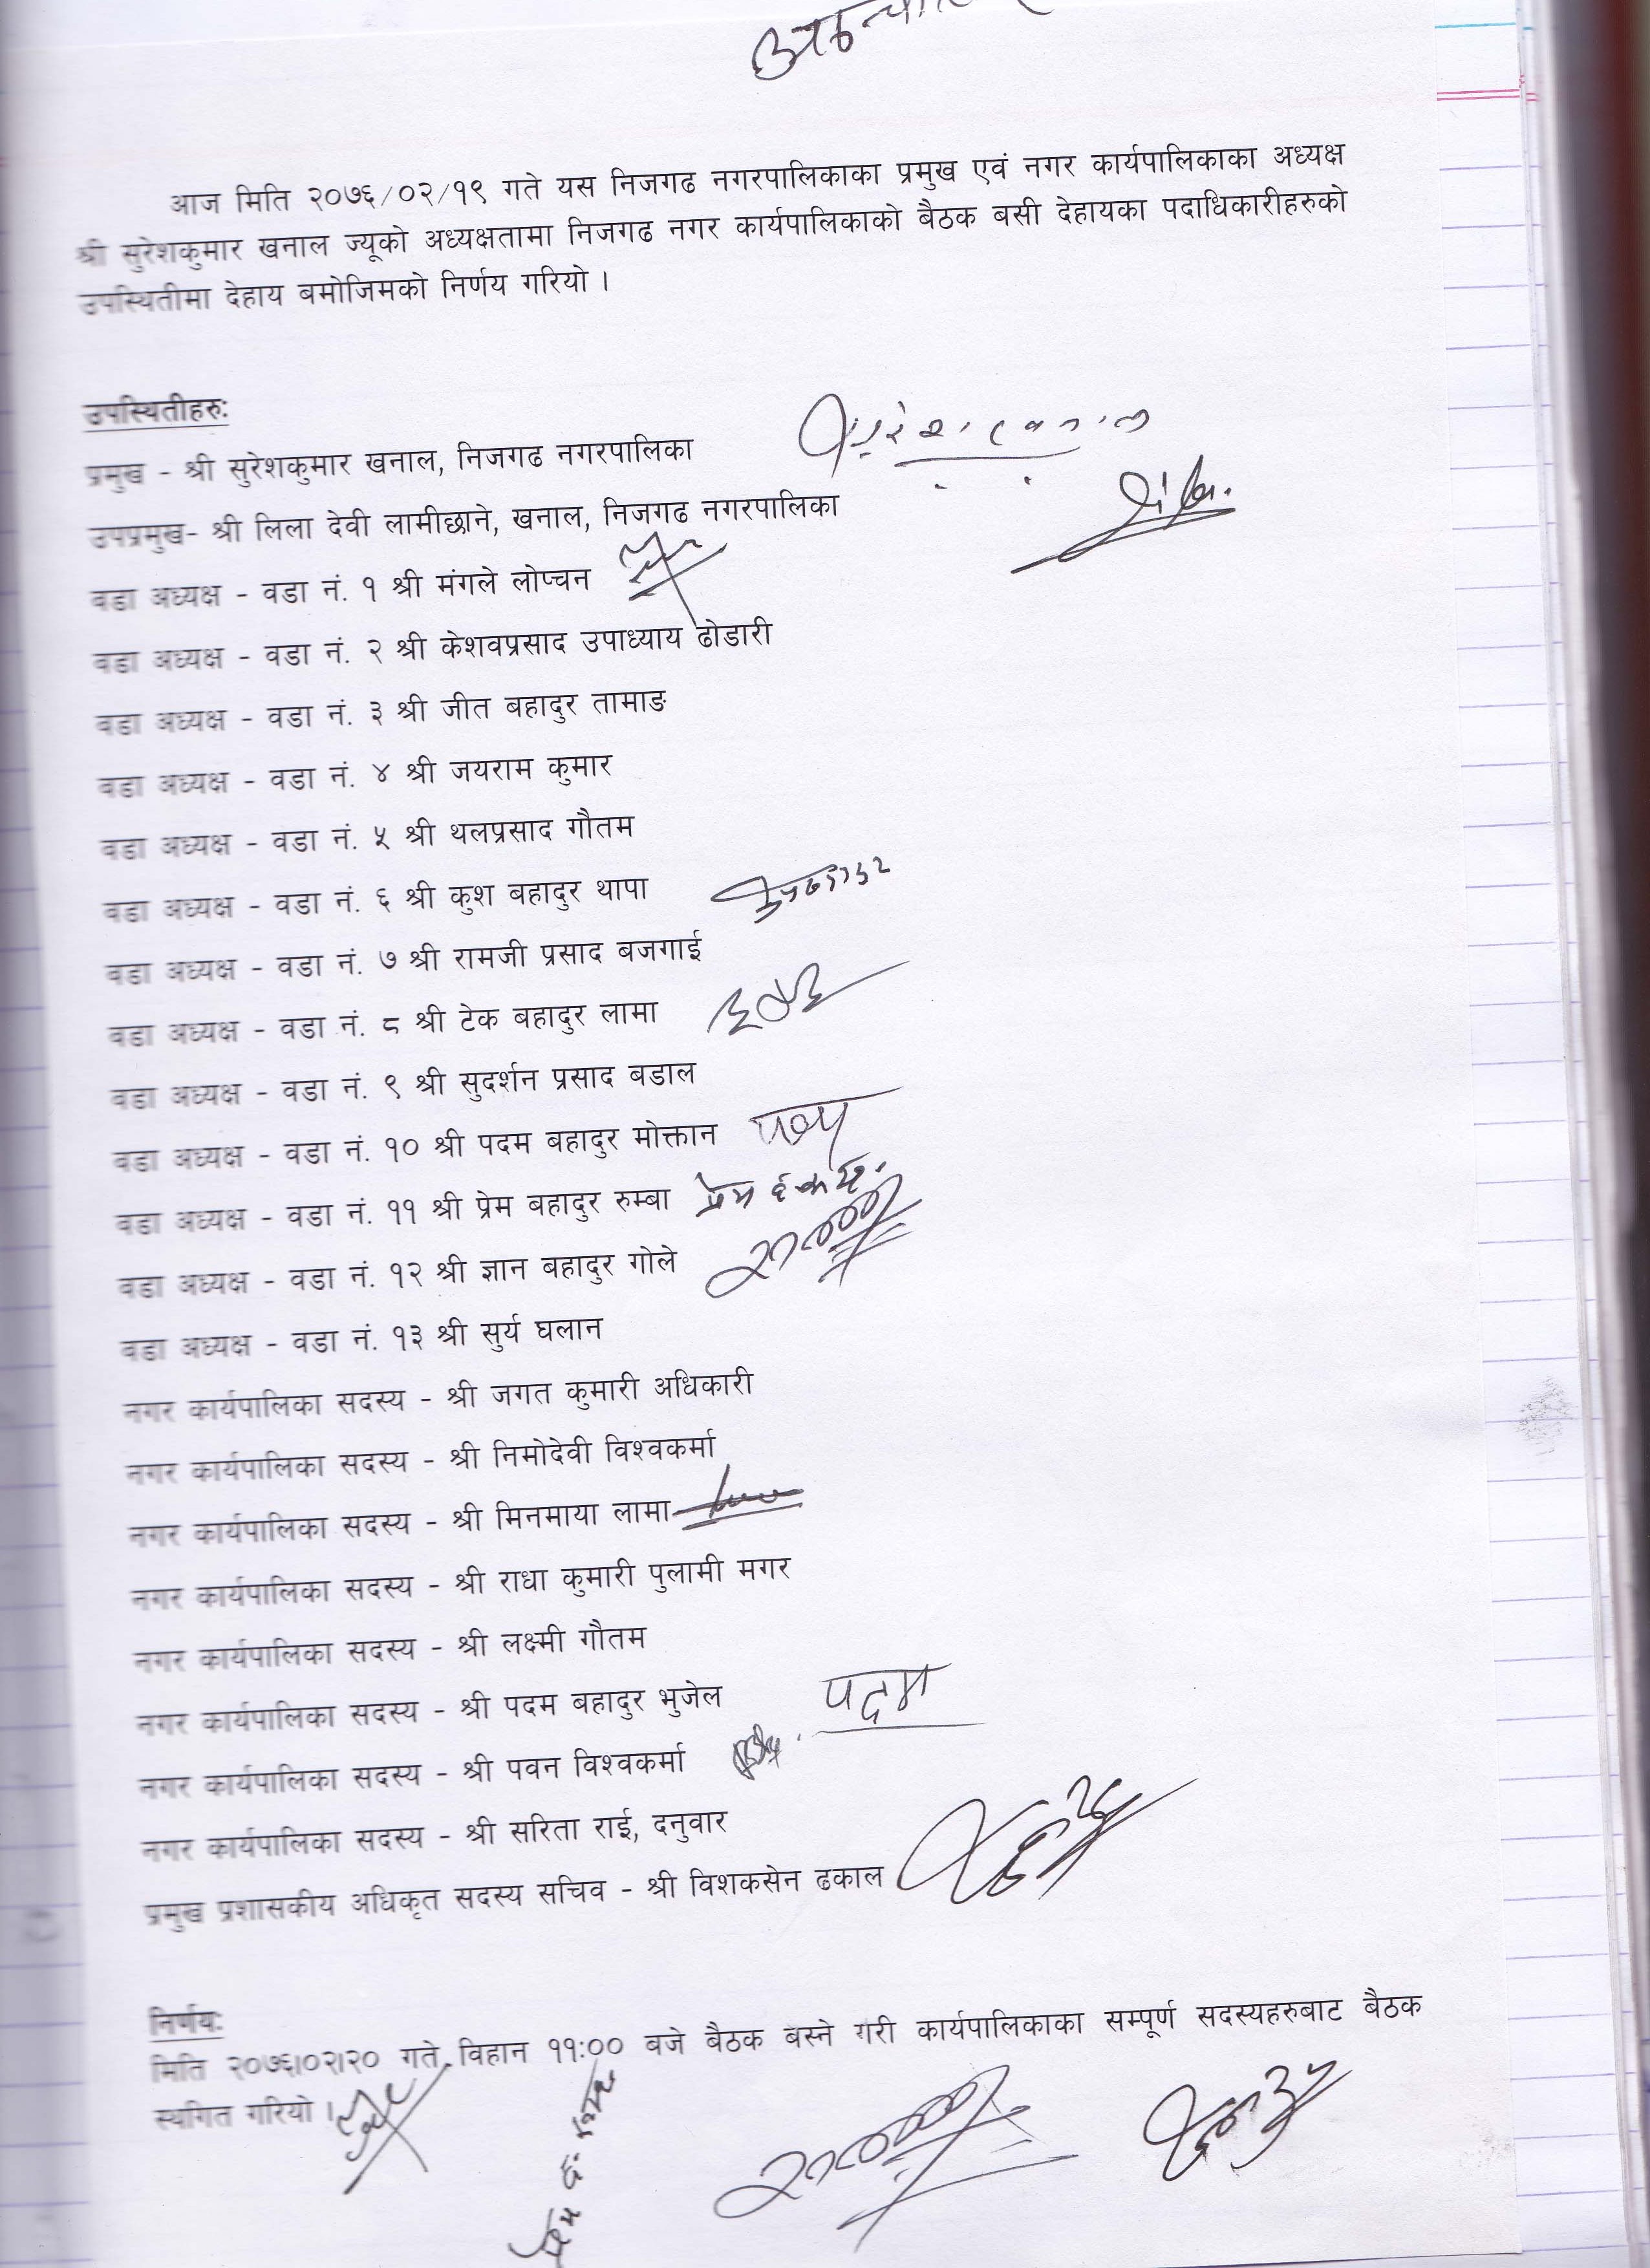 आज मिति २०७६/०२/१९ गते यस निजगढ नगरपालिकाका प्रमुख एवं नगर कार्यपालिकाका अध्यक्ष
श्री सुरेशकुमार खनाल ज्यूको अध्यक्षतामा निजगढ नगर कार्यपालिकाको बैठक बसी देहायका पदाधिकारीहरुको
उपस्थितीमा देहाय बमोजिमको निर्णय गरियो ।
उपस्थितीहरु:
प्रमुख - श्री सुरेशकुमार खनाल, निजगढ नगरपालिका
उपप्रमुख- श्री लिला देवी लामीछाने, खनाल, निजगढ नगरपालिका
वडा अध्यक्ष - वडा नं. १ श्री मंगले लोप्चन
वडा अध्यक्ष - वडा नं. २ श्री केशवप्रसाद उपाध्याय ढोडारी
वडा अध्यक्ष - वडा नं. ३ श्री जीत बहादुर तामाङ
वडा अध्यक्ष - वडा नं. ४ श्री जयराम कुमार
वडा अध्यक्ष - वडा नं. ५ श्री थलप्रसाद गौतम
वडा अध्यक्ष - वडा नं. ६ श्री कुश बहादुर थापा
वडा अध्यक्ष - वडा नं. ७ श्री रामजी प्रसाद बजगाई
वडा अध्यक्ष - वडा नं. ८ श्री टेक बहादुर लामा
वडा अध्यक्ष - वडा नं. ९ श्री सुदर्शन प्रसाद बडाल
वडा अध्यक्ष - वडा नं. १० श्री पदम बहादुर मोक्तान
वडा अध्यक्ष - वडा नं. ११ श्री प्रेम बहादुर रुम्बा
वडा अध्यक्ष - वडा नं. १२ श्री ज्ञान बहादुर गोले
वडा अध्यक्ष - वडा नं. १३ श्री सुर्य घलान
नगर कार्यपालिका सदस्य - श्री जगत कुमारी अधिकारी
नगर कार्यपालिका सदस्य - श्री निमोदेवी विश्वकर्मा
नगर कार्यपालिका सदस्य - श्री मिनमाया लामा
नगर कार्यपालिका सदस्य - श्री राधा कुमारी पुलामी मगर
नगर कार्यपालिका सदस्य - श्री लक्ष्मी गौतम
नगर कार्यपालिका सदस्य - श्री पदम बहादुर भुजेल पदम
नगर कार्यपालिका सदस्य - श्री पवन विश्वकर्मा
नगर कार्यपालिका सदस्य - श्री सरिता राई, दनुवार
प्रमुख प्रशासकीय अधिकृत सदस्य सचिव - श्री विशकसेन ढकाल
निर्णय:
मिति २०७६।०२।२० गते विहान ११:०० बजे बैठक बस्ने गरी कार्यपालिकाका सम्पूर्ण सदस्यहरुबाट बैठक
स्थगित गरियो ।